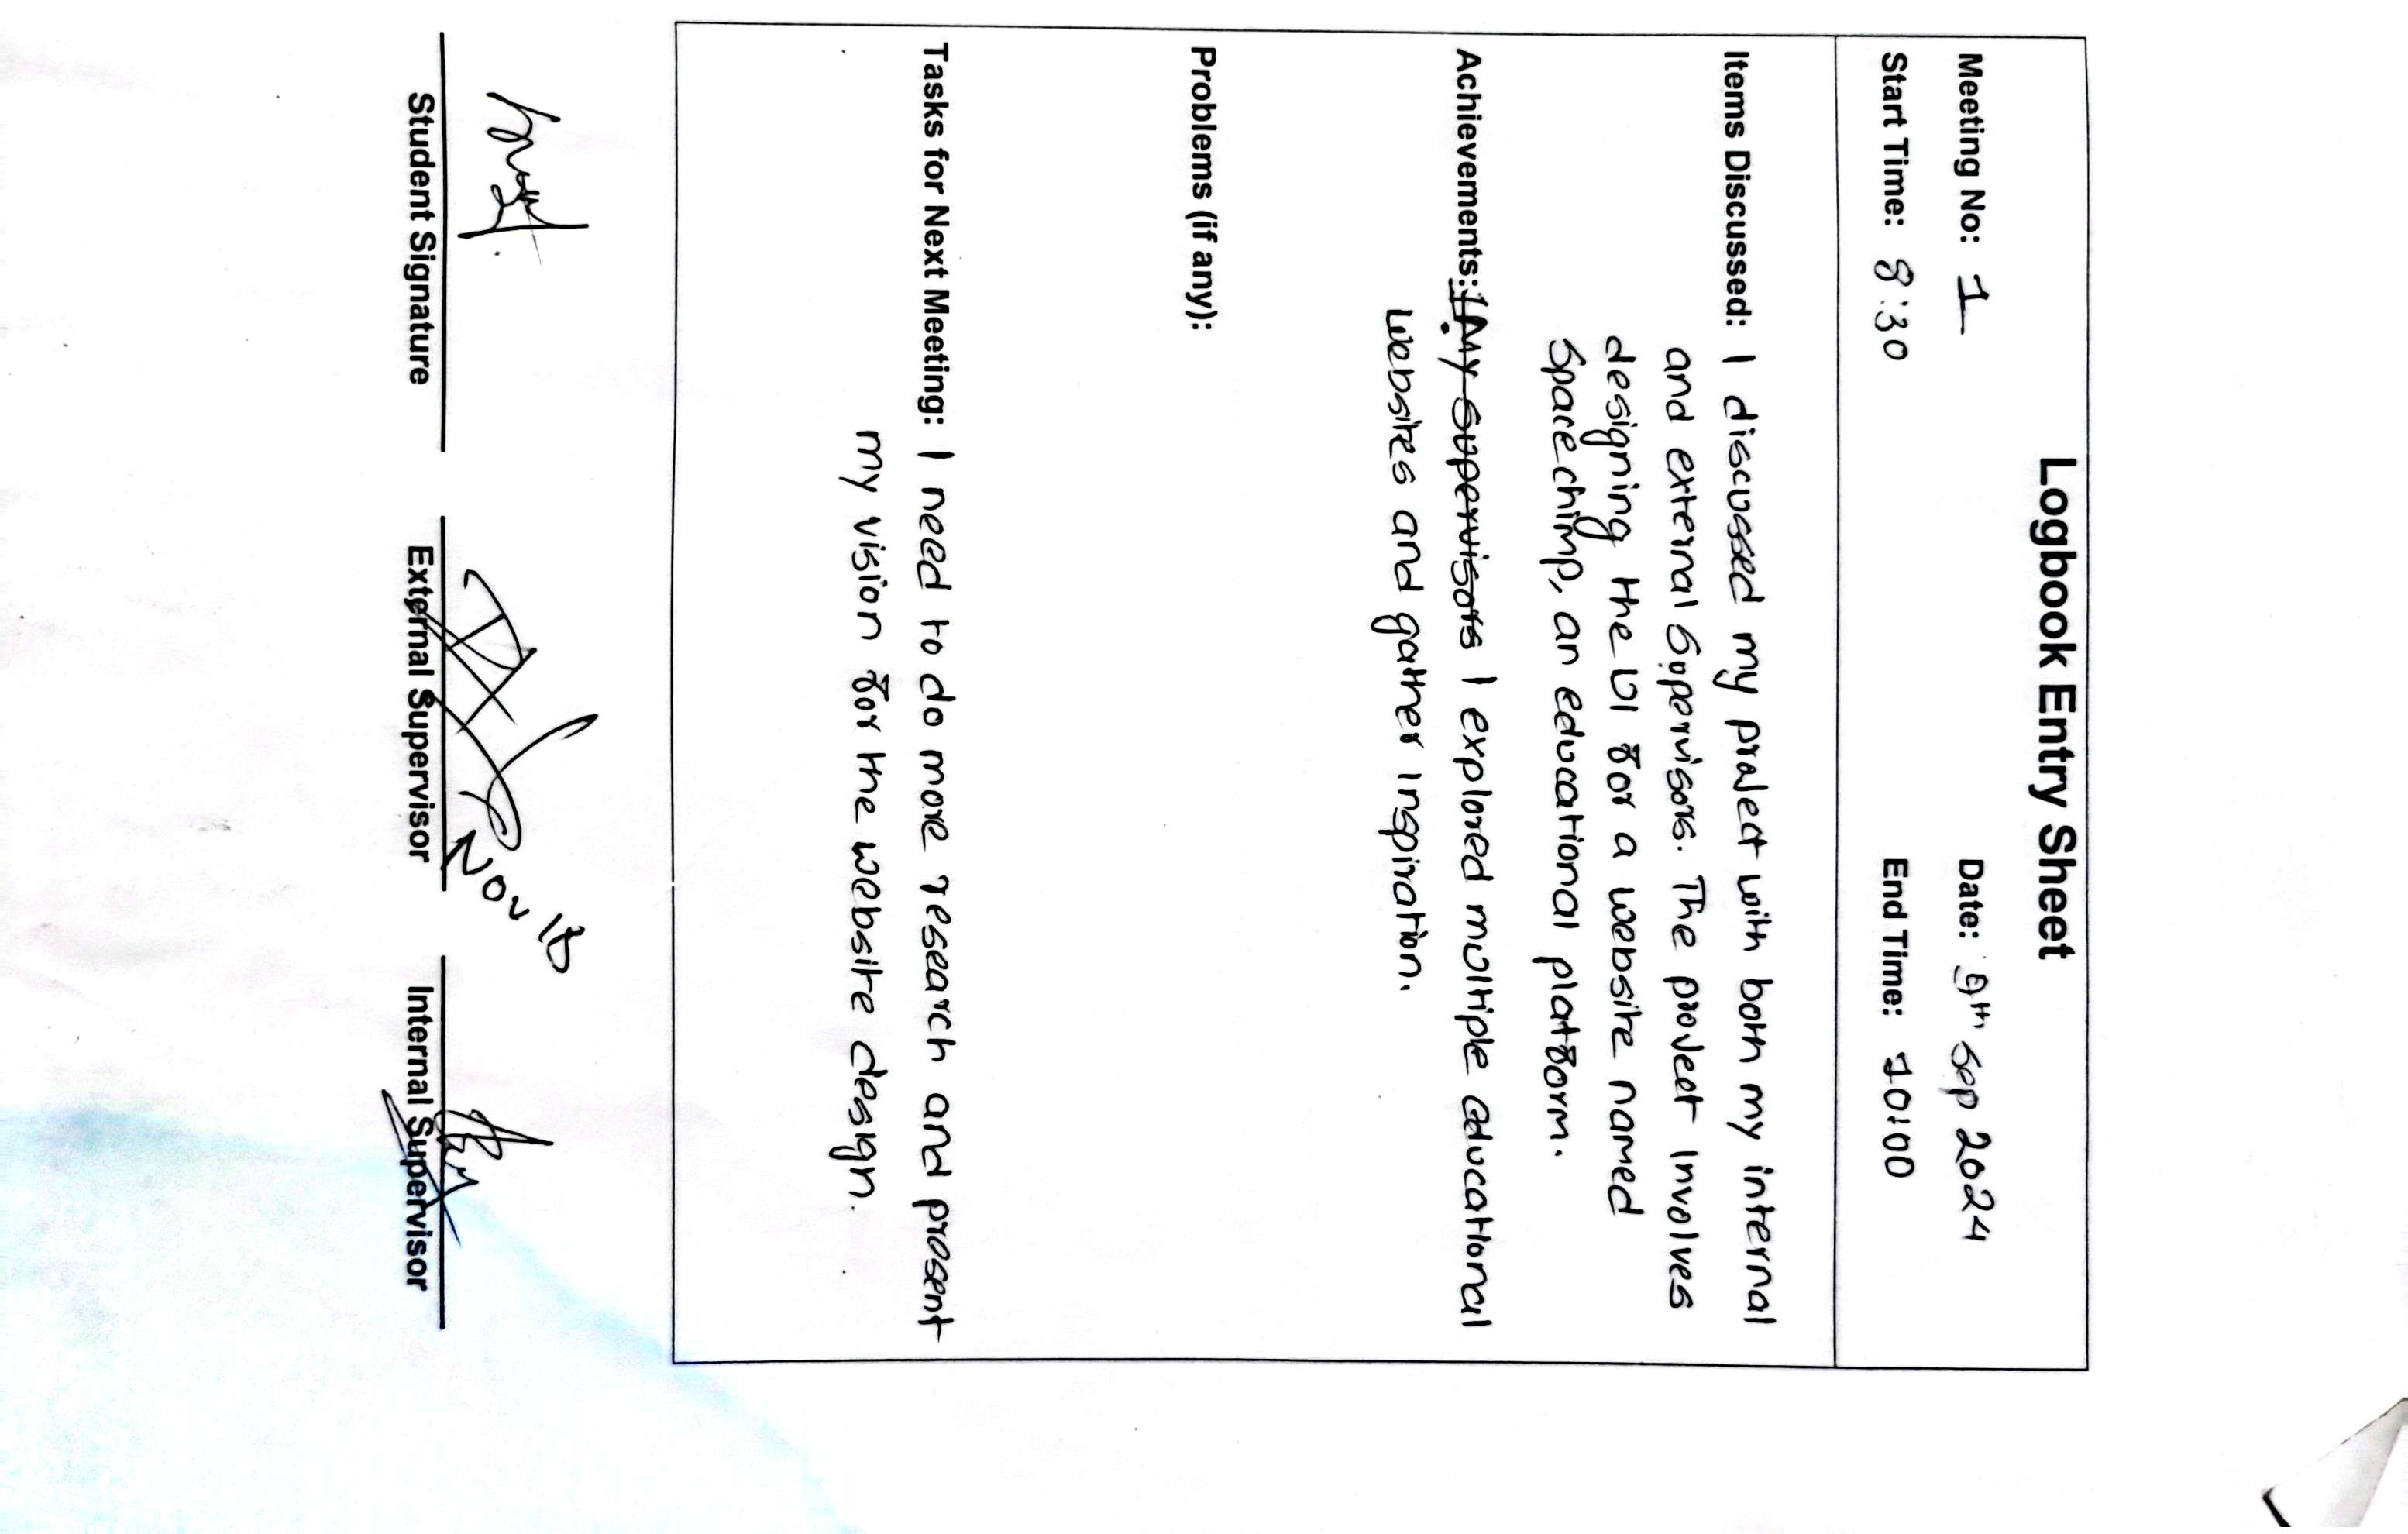 Logbook Entry Sheet
Meeting No: 1 Date: 9th Sep 2024
Start Time: 8:30 End Time: 10:00
Items Discussed: I discussed my project with both my internal
and external Supervisors. The project involves
designing the UI for a website named
Spacechimp, an educational platform.
Achievements: 1. My supervisors I explored multiple educational
websites and gather inspiration.
Problems (if any):
Tasks for Next Meeting: I need to do more research and present
my vision for the website design.
Nov 18
Student Signature External Supervisor Internal Supervisor